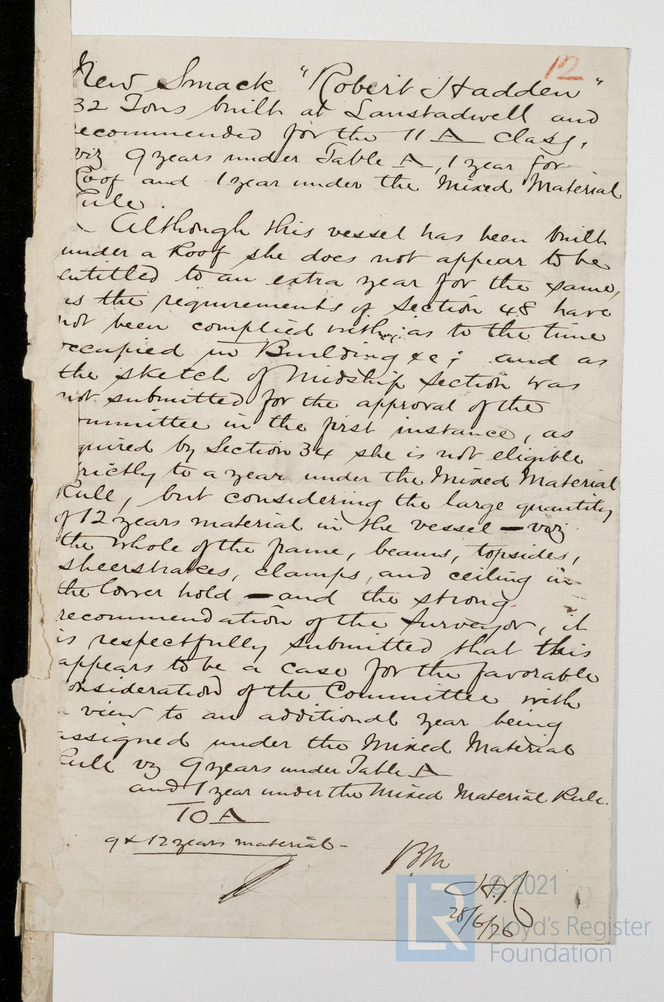 12
New Smack "Robert Hadden"
32 Tons built at Lanstadwell and
recommended for the 11 A Class,
viz 9 years under Table A, 1 year for
Roof and 1 year under the Mixed Material
Rule.
Although this vessel has been built
under a Roof she does not appear to be
entitled to an extra year for the same,
as the requirements of Section 48 have
not been complied with, as to the time
occupied in Building &c; and as
the sketch of Midship Section was
not submitted for the approval of the
ommittee in the first instance, as
quired by Section 34 she is not eligible
trictly to a year under the Mixed Material
Rule, but considering the large quantity
of 12 years material in the vessel - viz
the whole of the frame, beams, topsides,
sheerstrakes, clamps, and ceiling in
the lower hold - and the strong
recommendation of the Surveyor, it
is respectfully submitted that this
appears to be a case for the favorable
onsideration of the Committee with
a view to an additional year being
assigned under the Mixed Material
Rule viz 9 years under Table A
and 1 year under the Mixed Material Rule.
10 A
9 & 12 years material -
BM
28/6/76
© 2021
LR
Lloyd's Register
Foundation